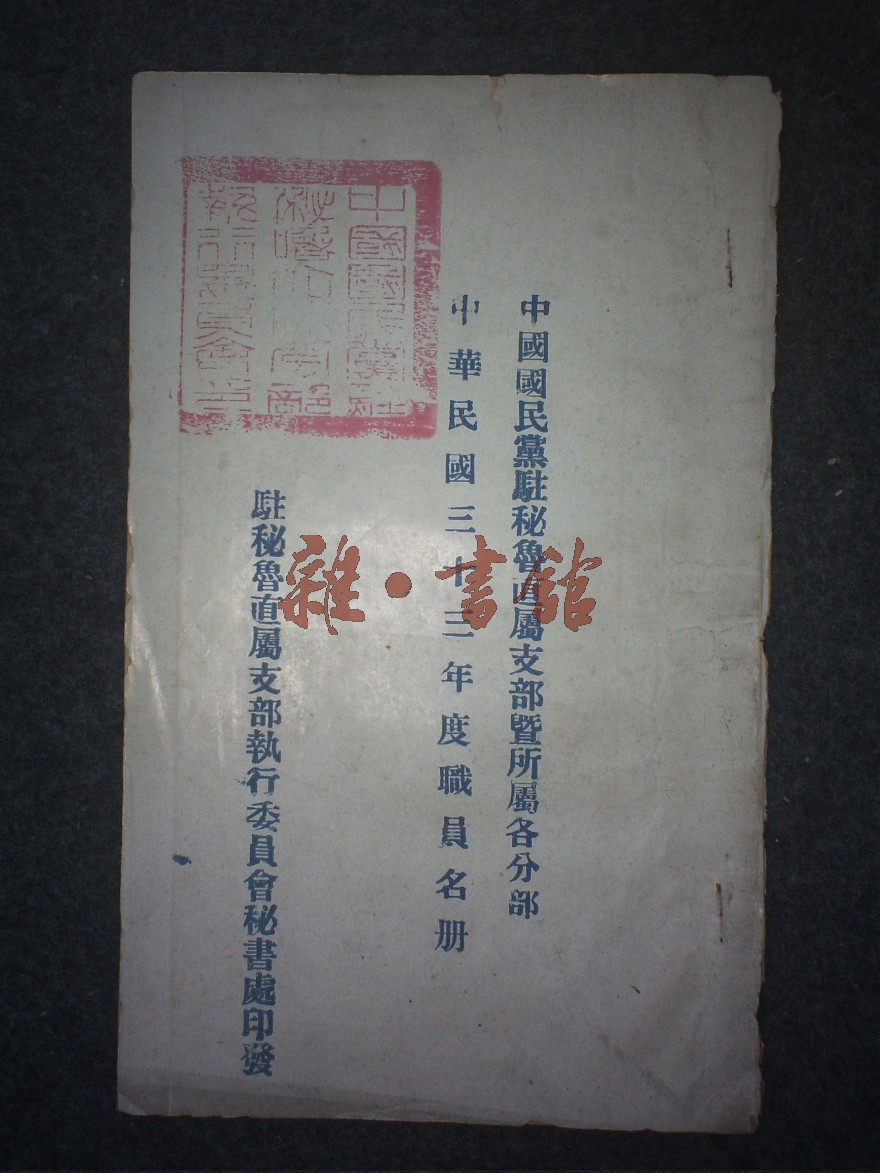 中國國民黨駐秘魯直屬支部暨所屬各分部
中華民國三十三年度職員名册
駐秘魯直屬支部執行委員會秘書處印發
中國國民黨駐
秘魯直屬支部
執行委員會之印
雜·書館